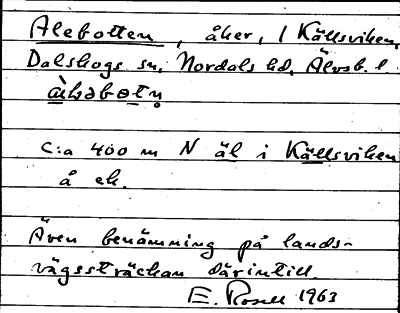 Alebotten, åker, 1 Källsviken,
Dalskogs sn, Nordals hd, Älvsb. l
a᷄ləbotn̥
C:a 400 m N äl i Källsviken
å ek.
Även benämning på lands-
vägssträckan därintill.
E. Rosell 1963